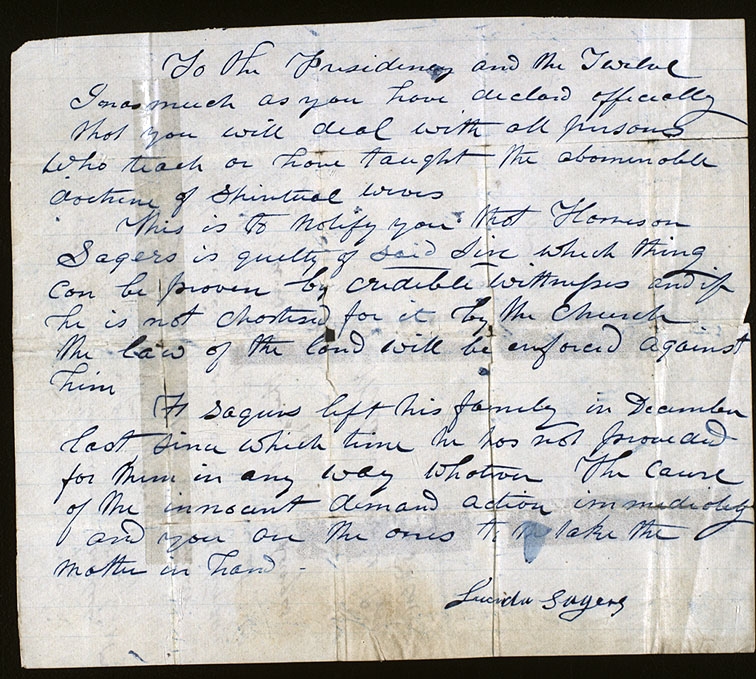 To the Presidency and the Twelve
Inasmuch as you have declard officially
that you will deal with all persons
who teach or have taught the abominable
doctrine of Spiritual wives
This is to notify you that Harrison
Sagers is guilty of said Sin which thing
can be proven by credible wittnesses and if
he is not chastised for it by the Church
the law of the land will be enforced against
him
H Sagers left his family in December
last since which time he has not provided
for them in any way whatever The cause
of the innocent demand action immediately
and you are the ones to take the
matter in hand -
Lucinda Sagers